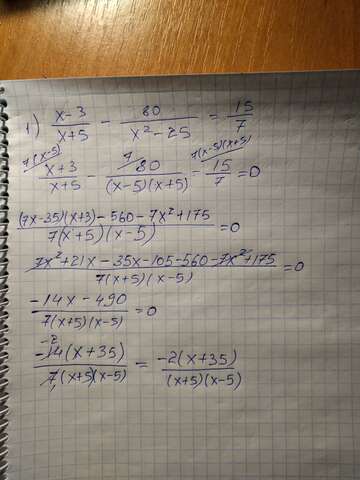 1) x-3/x+5 - 80/x²-25 = 15/7
7(x-5) 7 7(x-5)(x+5)
x+3/x+5 - 80/(x-5)(x+5) - 15/7 = 0
(7x-35)(x+3)-560-7x²+175/7(x+5)(x-5) = 0
7x²+21x-35x-105-560-7x²+175/7(x+5)(x-5) = 0
-14x-490/7(x+5)(x-5) = 0
-2
-14(x+35)/7(x+5)(x-5) = -2(x+35)/(x+5)(x-5)